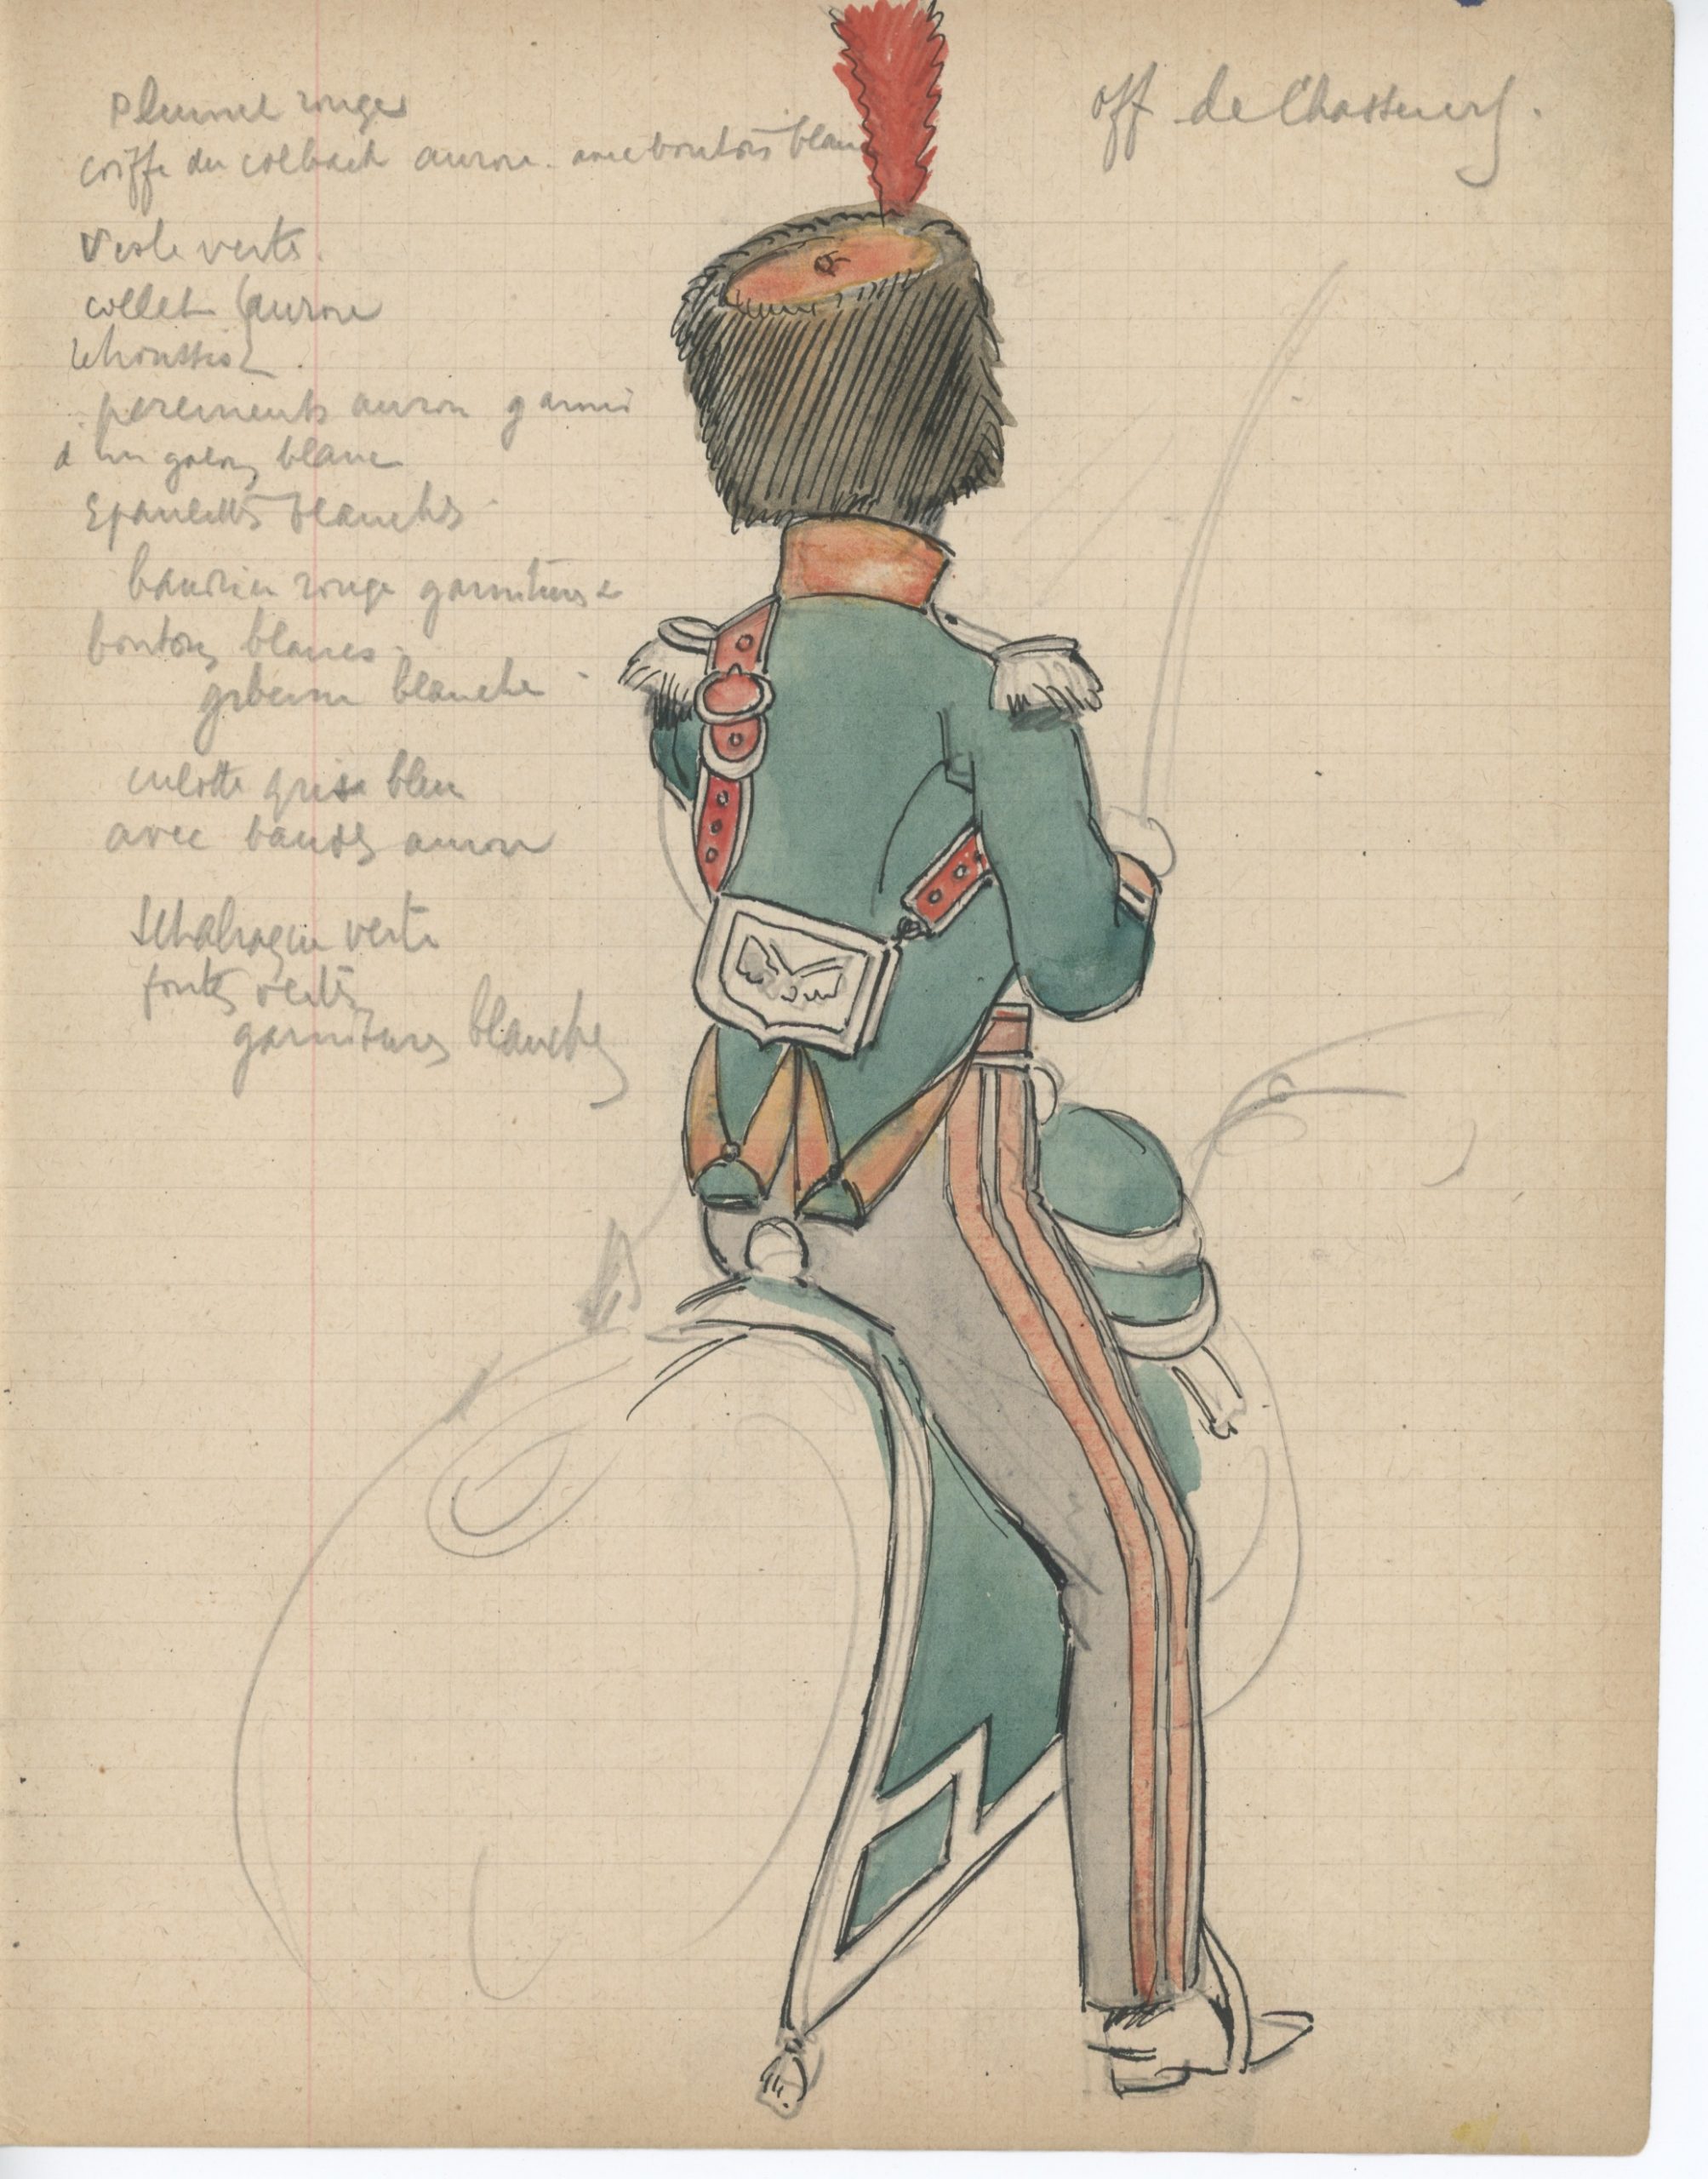 off de Chasseurs.
Plumet rouge
coiffe du colback aurore. avec boutons blancs
Veste verte.
collet { aurore
retroussis
parements aurore garni
d'un galon blanc
Epaulettes blanches
baudrier rouge garnitures &
boutons blancs
giberne blanche
culotte grise bleu
avec bandes aurore
Schabraque verte
fontes vertes
garnitures blanches